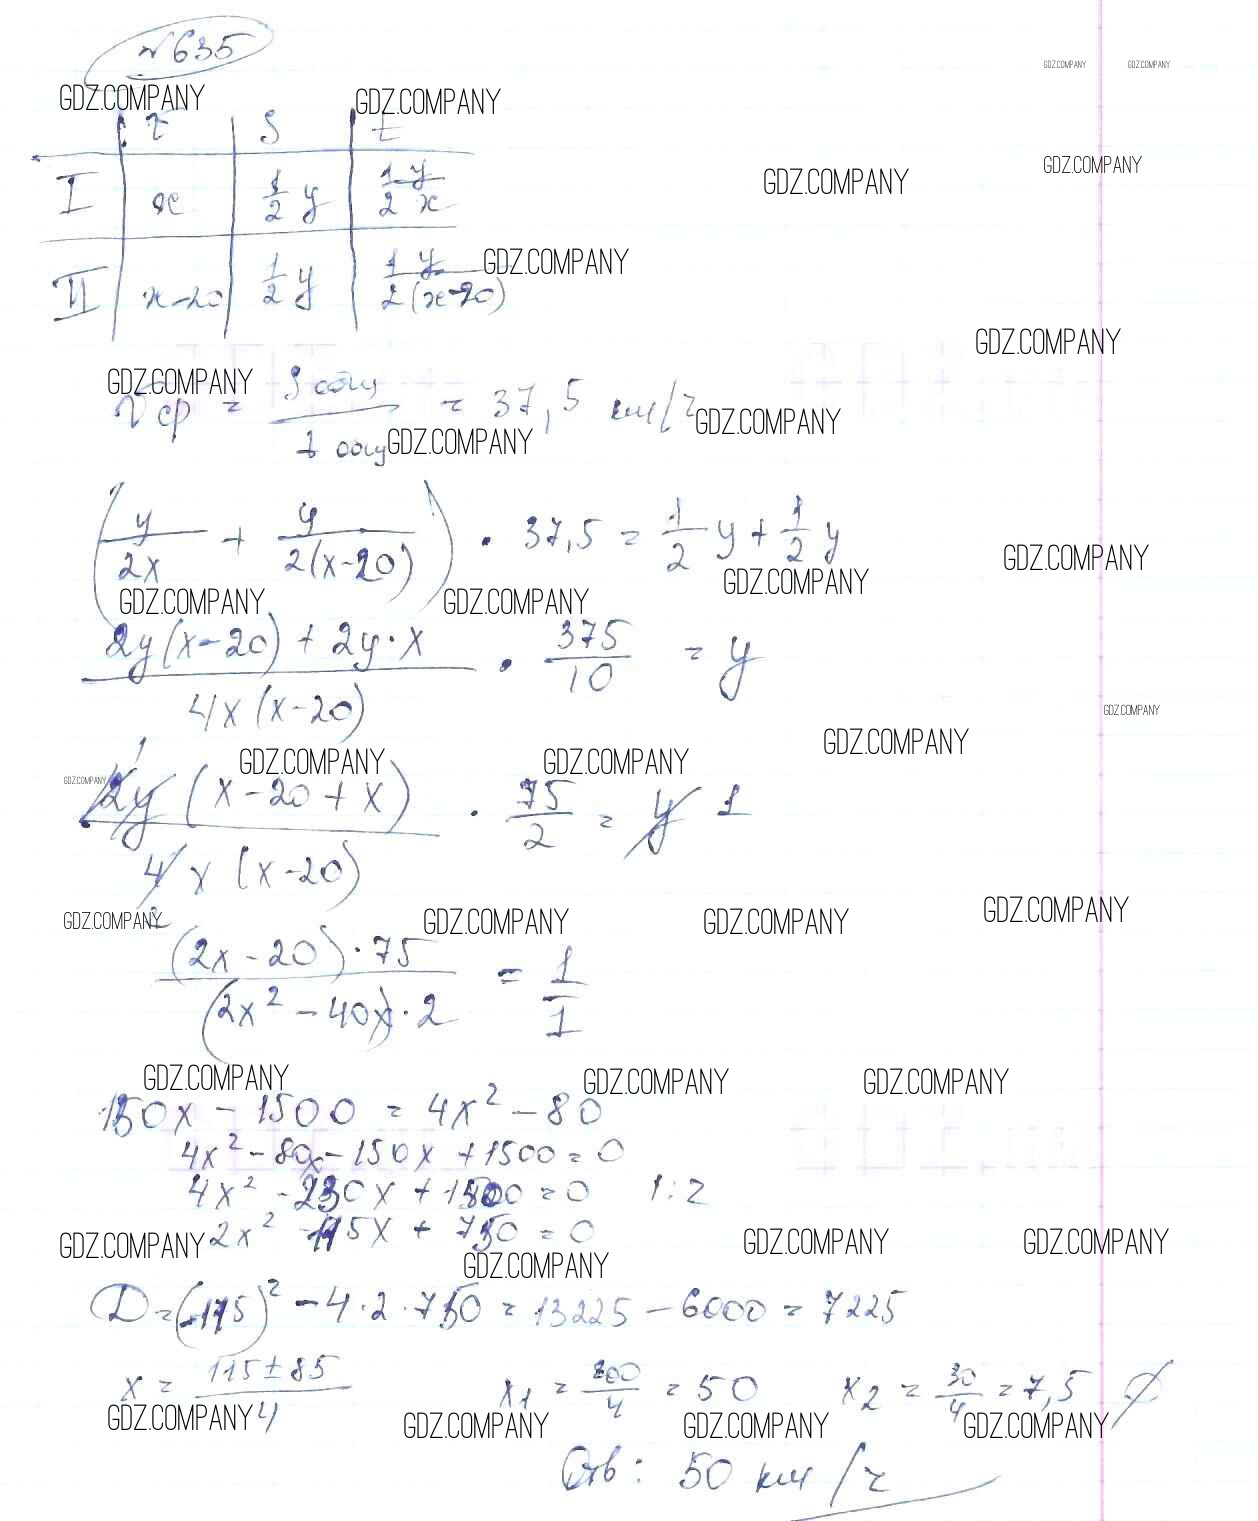 №635
GDZ.COMPANY GDZ.COMPANY
GDZ.COMPANY GDZ.COMPANY
v S t
GDZ.COMPANY GDZ.COMPANY
I x 1/2 y 1 y / 2 x
GDZ.COMPANY
II x-20 1/2 y 1 y / 2(x-20)
GDZ.COMPANY
GDZ.COMPANY
Vср = S общ / t общ = 37,5 км/ч
GDZ.COMPANY GDZ.COMPANY
(y / 2x + y / 2(x-20)) · 37,5 = 1/2 y + 1/2 y
GDZ.COMPANY
GDZ.COMPANY GDZ.COMPANY GDZ.COMPANY
2y(x-20) + 2y·x / 4x(x-20) · 375/10 = y
GDZ.COMPANY
GDZ.COMPANY GDZ.COMPANY GDZ.COMPANY
GDZ.COMPANY
1
2y (x-20+x) / 4x (x-20) · 75/2 = y 1
2
GDZ.COMPANY GDZ.COMPANY GDZ.COMPANY GDZ.COMPANY
(2x-20)·75 / (2x² - 40x)·2 = 1/1
GDZ.COMPANY GDZ.COMPANY GDZ.COMPANY
150x - 1500 = 4x² - 80
4x² - 80x - 150x + 1500 = 0
4x² - 230x + 1500 = 0 |:2
2x² - 115x + 750 = 0
GDZ.COMPANY GDZ.COMPANY GDZ.COMPANY
GDZ.COMPANY
D = (-115)² - 4·2·750 = 13225 - 6000 = 7225
x = 115 ± 85 / 4 x1 = 200/4 = 50 x2 = 30/4 = 7,5 ∅
GDZ.COMPANY GDZ.COMPANY GDZ.COMPANY GDZ.COMPANY
Отв: 50 км/ч